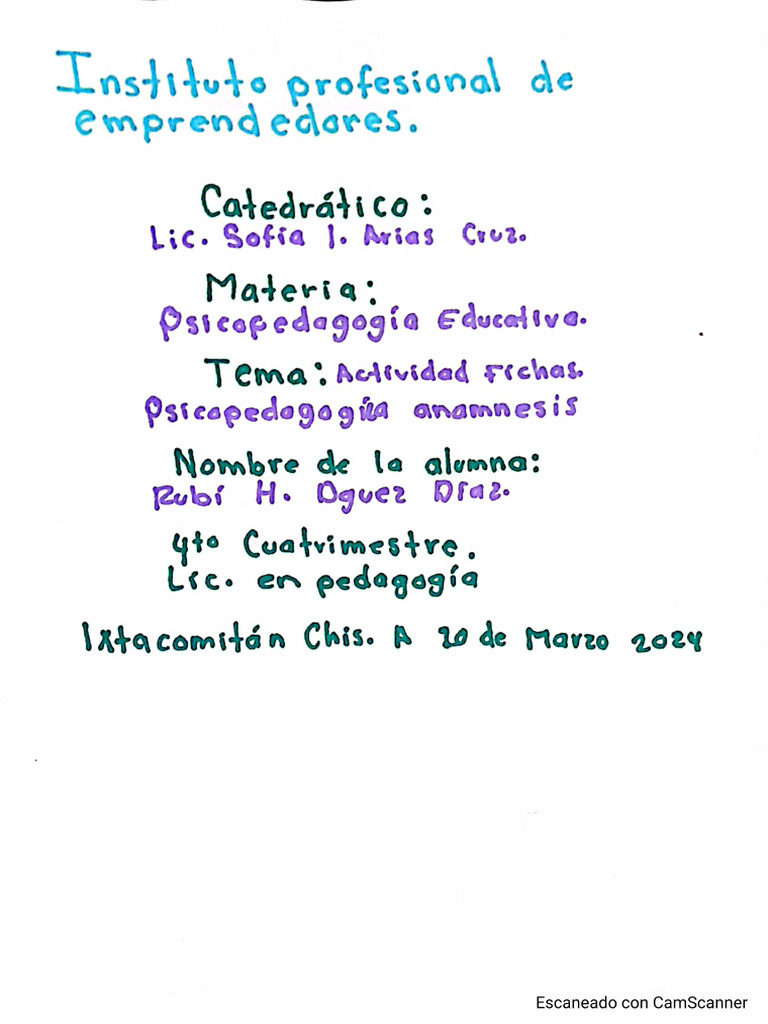 Instituto profesional de
emprendedores.
Catedrático:
Lic. Sofía I. Arias Cruz.
Materia:
Psicopedagogía Educativa.
Tema: Actividad Fichas.
Psicopedagogía anamnesis
Nombre de la alumna:
Rubí H. Oguez Díaz.
4to Cuatrimestre.
Lic. en pedagogía
Ixtacomitán Chis. A 20 de Marzo 2024
Escaneado con CamScanner